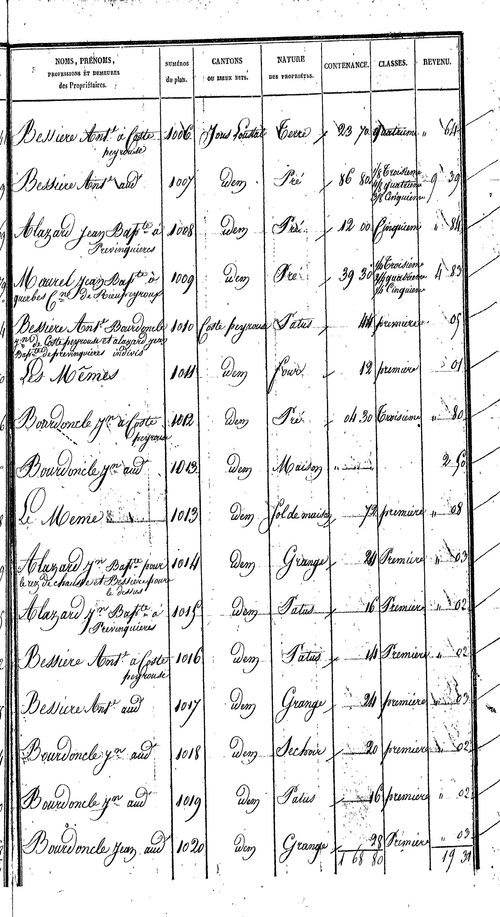 NOMS, PRÉNOMS, PROFESSIONS ET DEMEURES des Propriétaires. NUMÉROS du plan. CANTONS OU LIEUX DITS. NATURE DES PROPRIÉTÉS. CONTENANCE. CLASSES. REVENU.
Bessiere Ant. à Coste peyrouse 1006 Terre 23 70 quatrieme " 64
Bessiere Ant. aud 1007 idem Pré 86 80 1/8 Troisieme quatrieme Cinquieme 9 39
Alazard Jean Bapte à Prevenquieres 1008 idem Pré 12 00 Cinquiem " 84
Maurel Jean Bapte à querbes Cne de 1009 idem Pré 39 30 Troisieme quatrieme Cinquiem 4 83
Bessiere Ant. Bourdoncle Jn de Coste peyrouse et alazard jean Bapte de prevenquieres indivis 1010 Coste peyrouse Patus 44 premiere 05
Les Mêmes 1011 idem four 12 premiere " 01
Bourdoncle Jn à Coste peyrouse 1012 idem Pré 04 30 Troisieme " 80
Bourdoncle Jn aud 1013 idem Maison " 2 50
Le Meme 1013 idem Sol de maison 72 premiere " 08
Alazard Jn Bapte pour le rez de chaussée et Bessiere pour le dessus 1014 idem Grange 24 Premiere " 03
Alazard Jn Bapte à Prevenquieres 1015 idem Patus 16 Premiere " 02
Bessiere Ant. à Coste peyrouse 1016 idem Patus 14 Premiere " 02
Bessiere Ant. aud 1017 idem Grange 24 premiere " 03
Bourdoncle Jn aud 1018 idem Sechoir 20 premiere " 02
Bourdoncle Jn aud 1019 idem Patus 16 premiere " 02
Bourdoncle Jean aud 1020 idem Grange 28 Premiere " 03
1 68 80 19 31